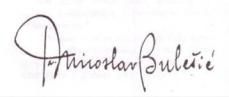 Dr Miroslav Bulešić